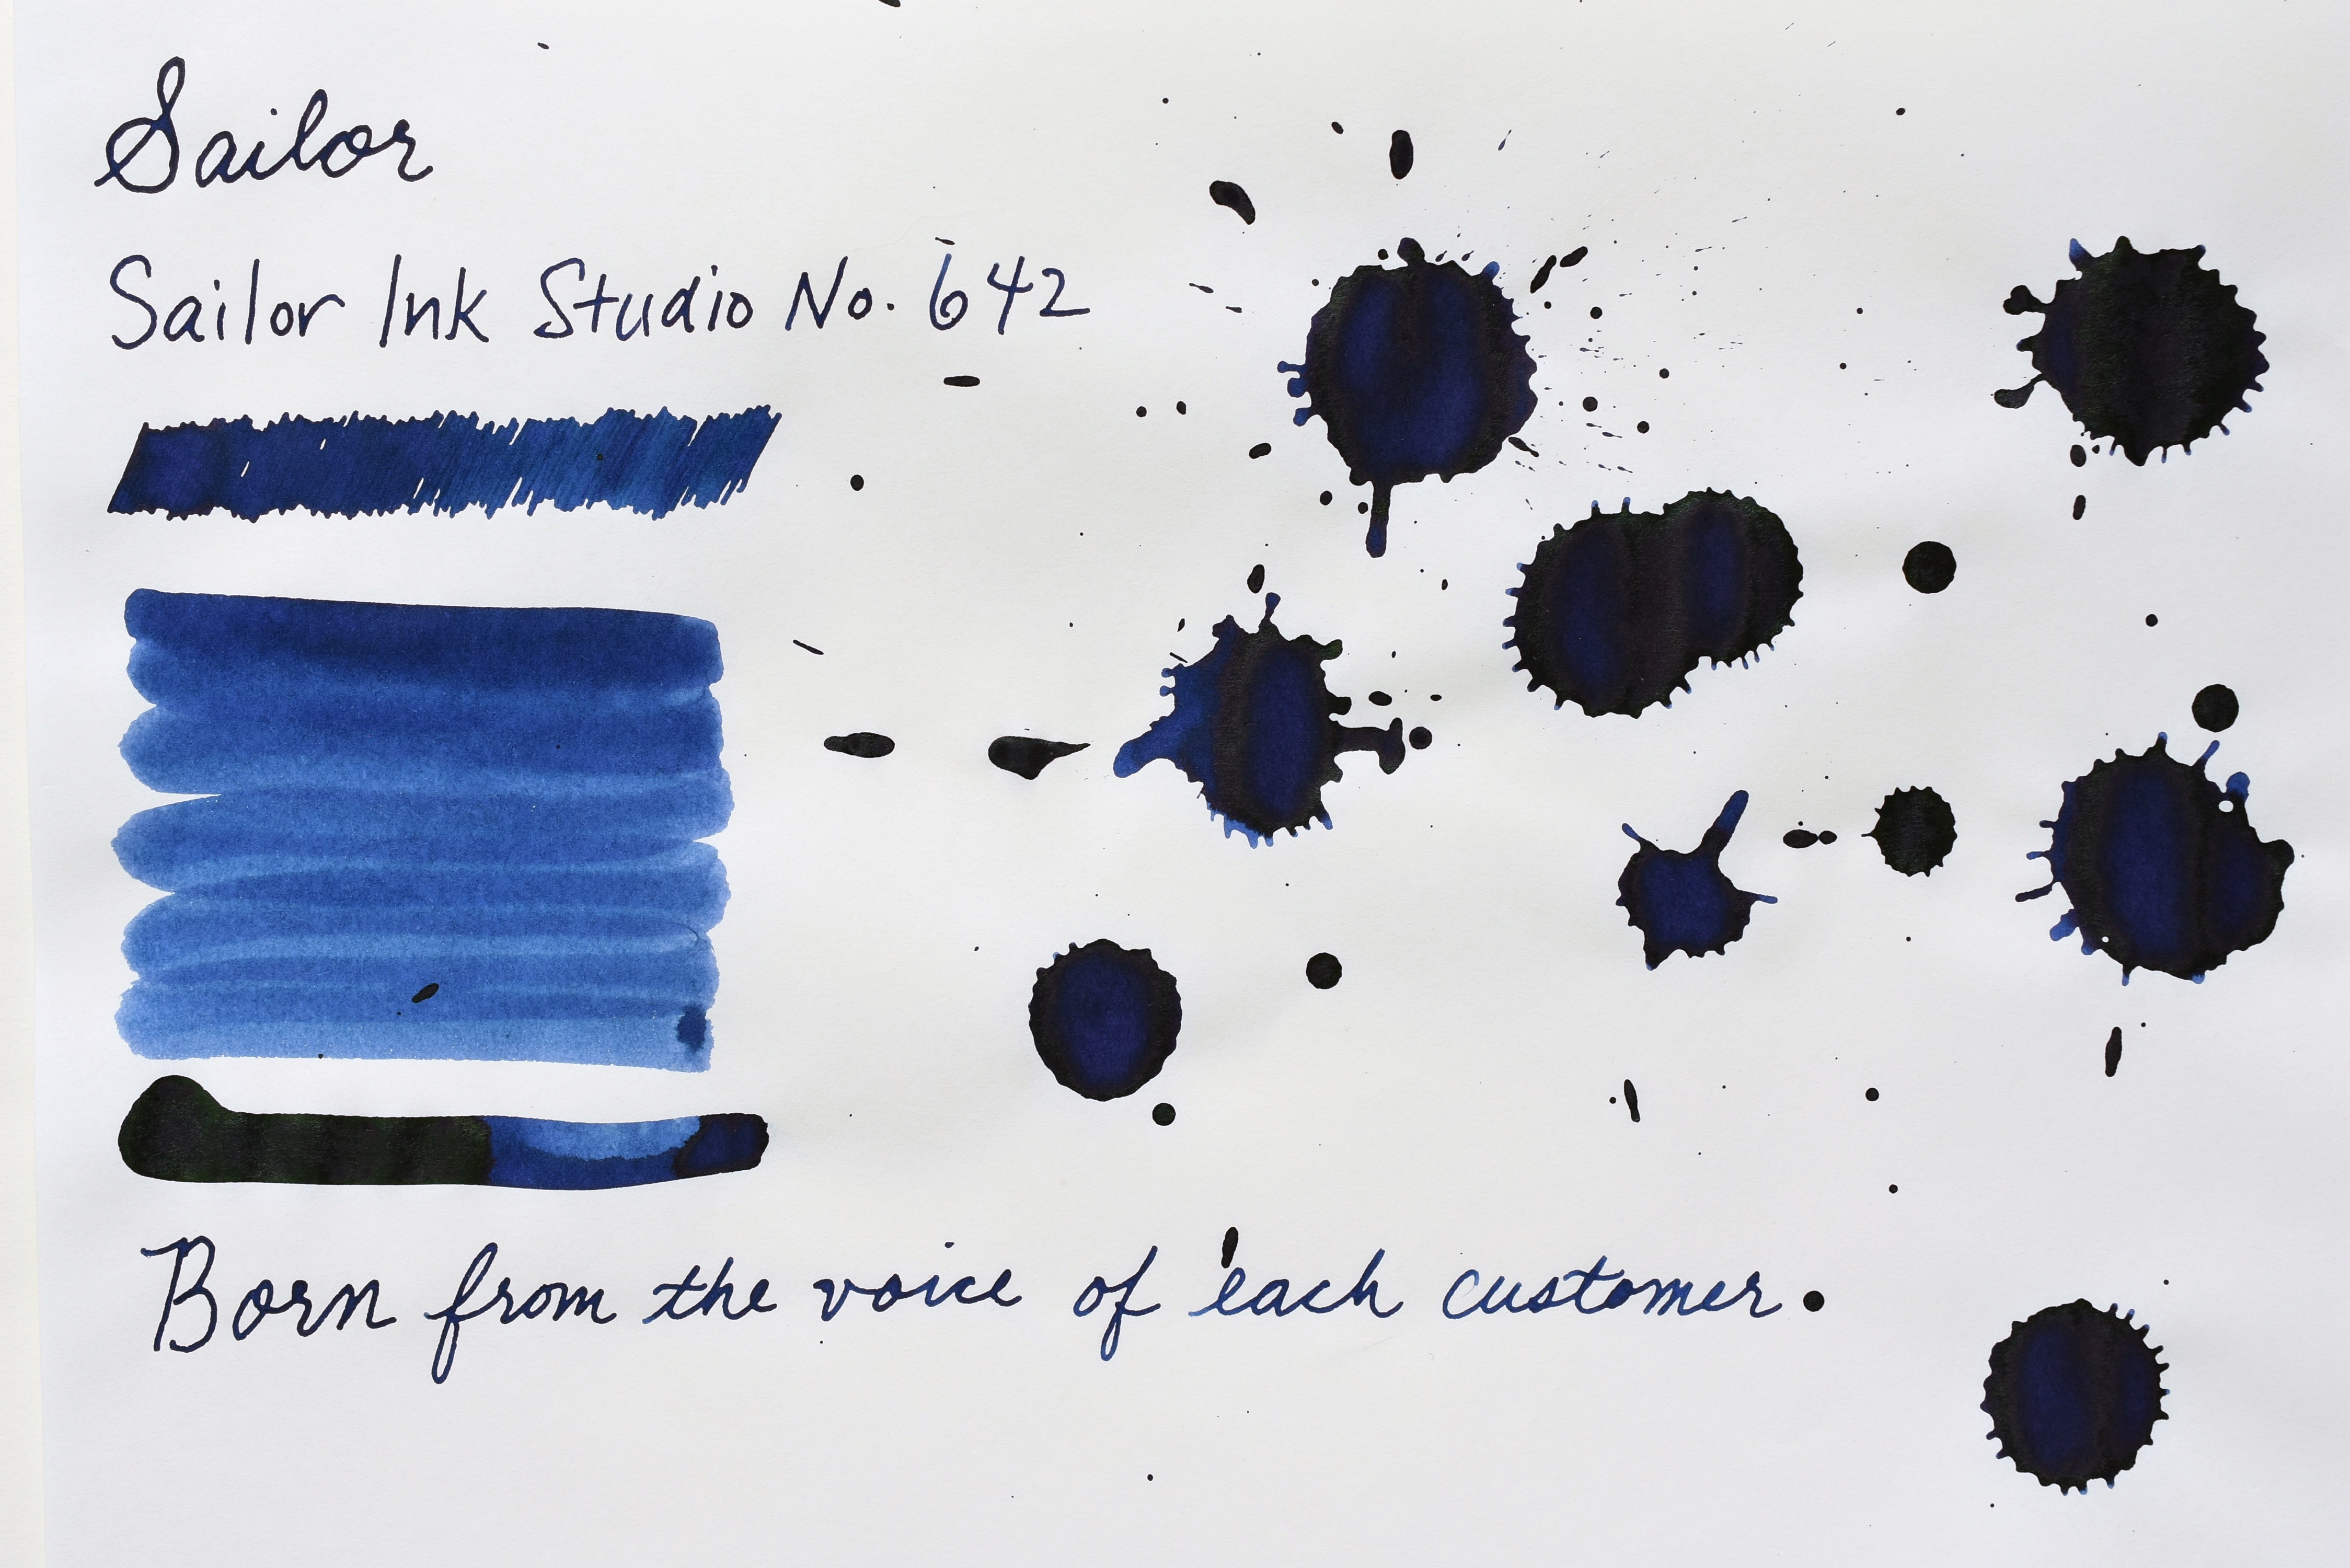 Sailor
Sailor Ink Studio No. 642
Born from the voice of each customer.